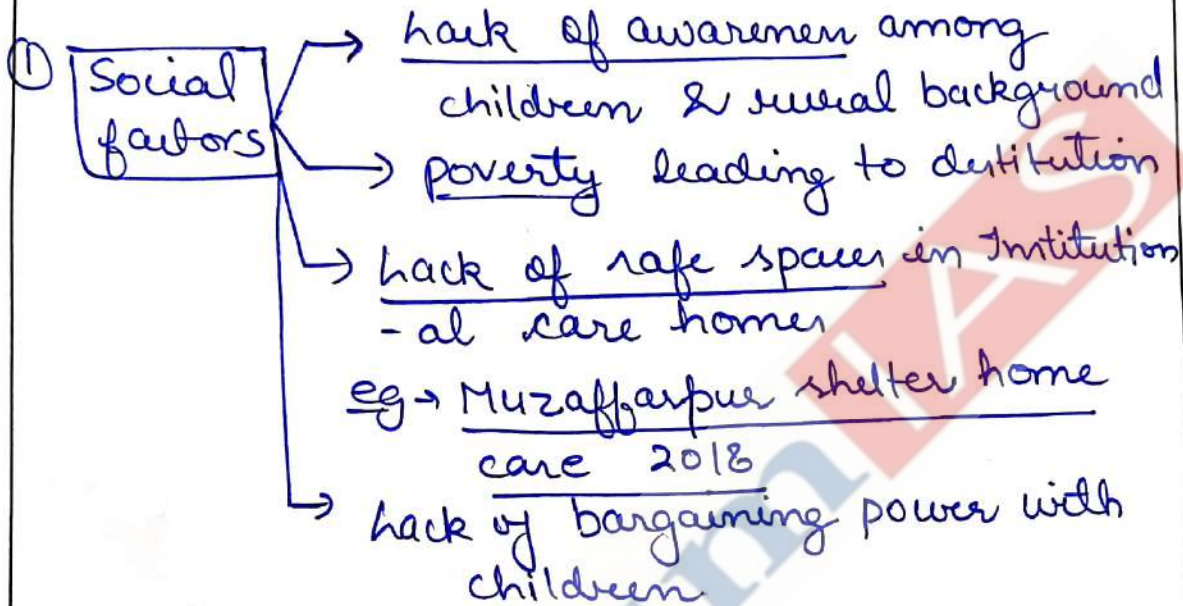 ① Social factors
→ Lack of awareness among
children & rural background
→ poverty leading to destitution
→ Lack of safe spaces in Institution
-al care homes
eg → Muzaffarpur shelter home
case 2018
→ Lack of bargaining power with
children
mIAS